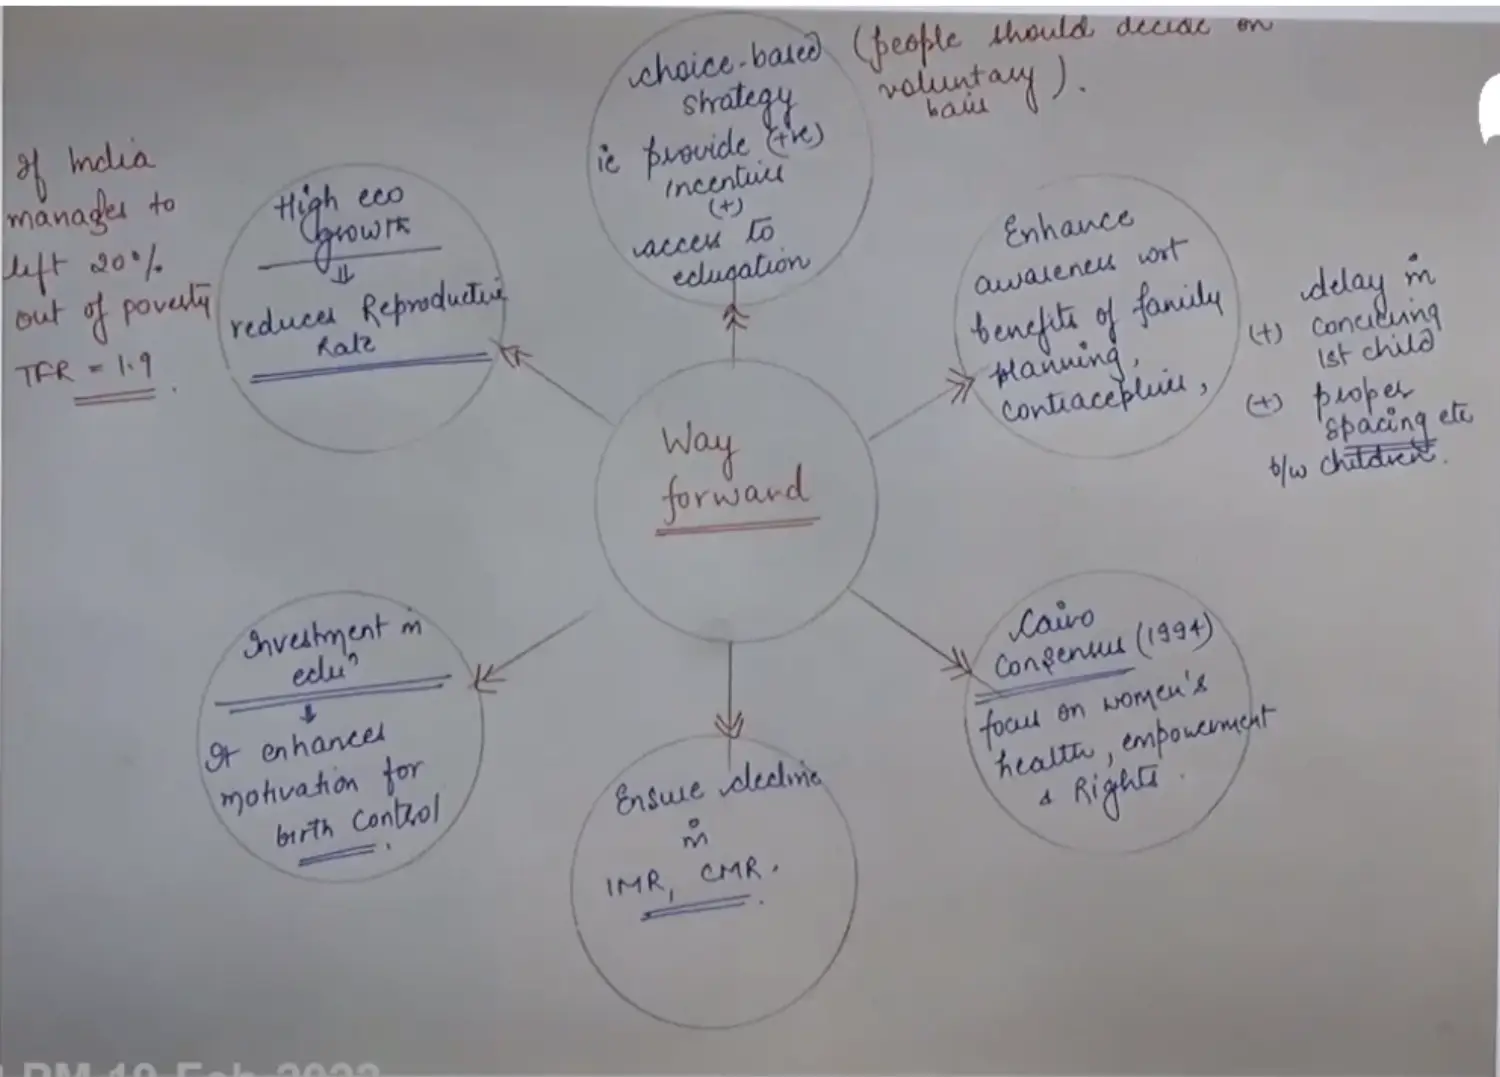 choice-based
strategy
ie provide (+ve)
incentives
(+)
access to
education
(people should decide on
voluntary ).
basis
If India
manages to
left 20%
out of poverty
TFR = 1.9
High eco
growth
⇓
reduces Reproductive
Rate
Enhance
awareness wrt
benefits of family
planning,
contraceptives,
delay in
(+) conceiving
1st child
(+) proper
spacing etc
b/w children.
Way
forward
Investment in
eduⁿ
↓
It enhances
motivation for
birth control.
Ensure decline
in
IMR, CMR.
Cairo
Consensus (1994)
focus on women's
health, empowerment
& Rights.
PM 19 Feb 2023